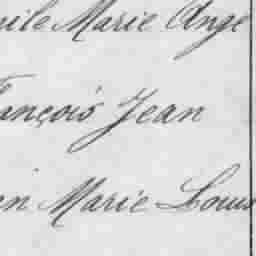 mile Marie Ange
ançois Jean
en Marie Louis